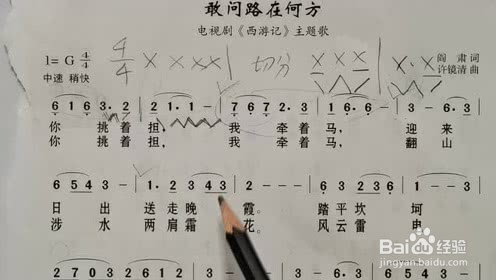 敢问路在何方
电视剧《西游记》主题歌
1= G 4/4 4/4 X X XX X | 切分 X X X X · X
阎 肃 词
中速 稍快 许镜清 曲
6 1 6 3 · 2 | 2 · 1 · 1 – | 7 6 7 2 · 2 | 1 6 · 6 – | 1 3 · 6 1
你 挑着 担, 我 牵着 马, 迎 来
你 挑着 担, 我 牵着 马, 翻 山
6 5 4 3 – | 1 · 2 3 4 3 | 2 – – | 6 3 2 3 6 | 1
日 出 送 走 晚 霞。 踏 平 坎 坷
涉 水 两 肩 霜 花。 风 云 雷 电
Baidu 百度 经验
jingyan.baidu.com